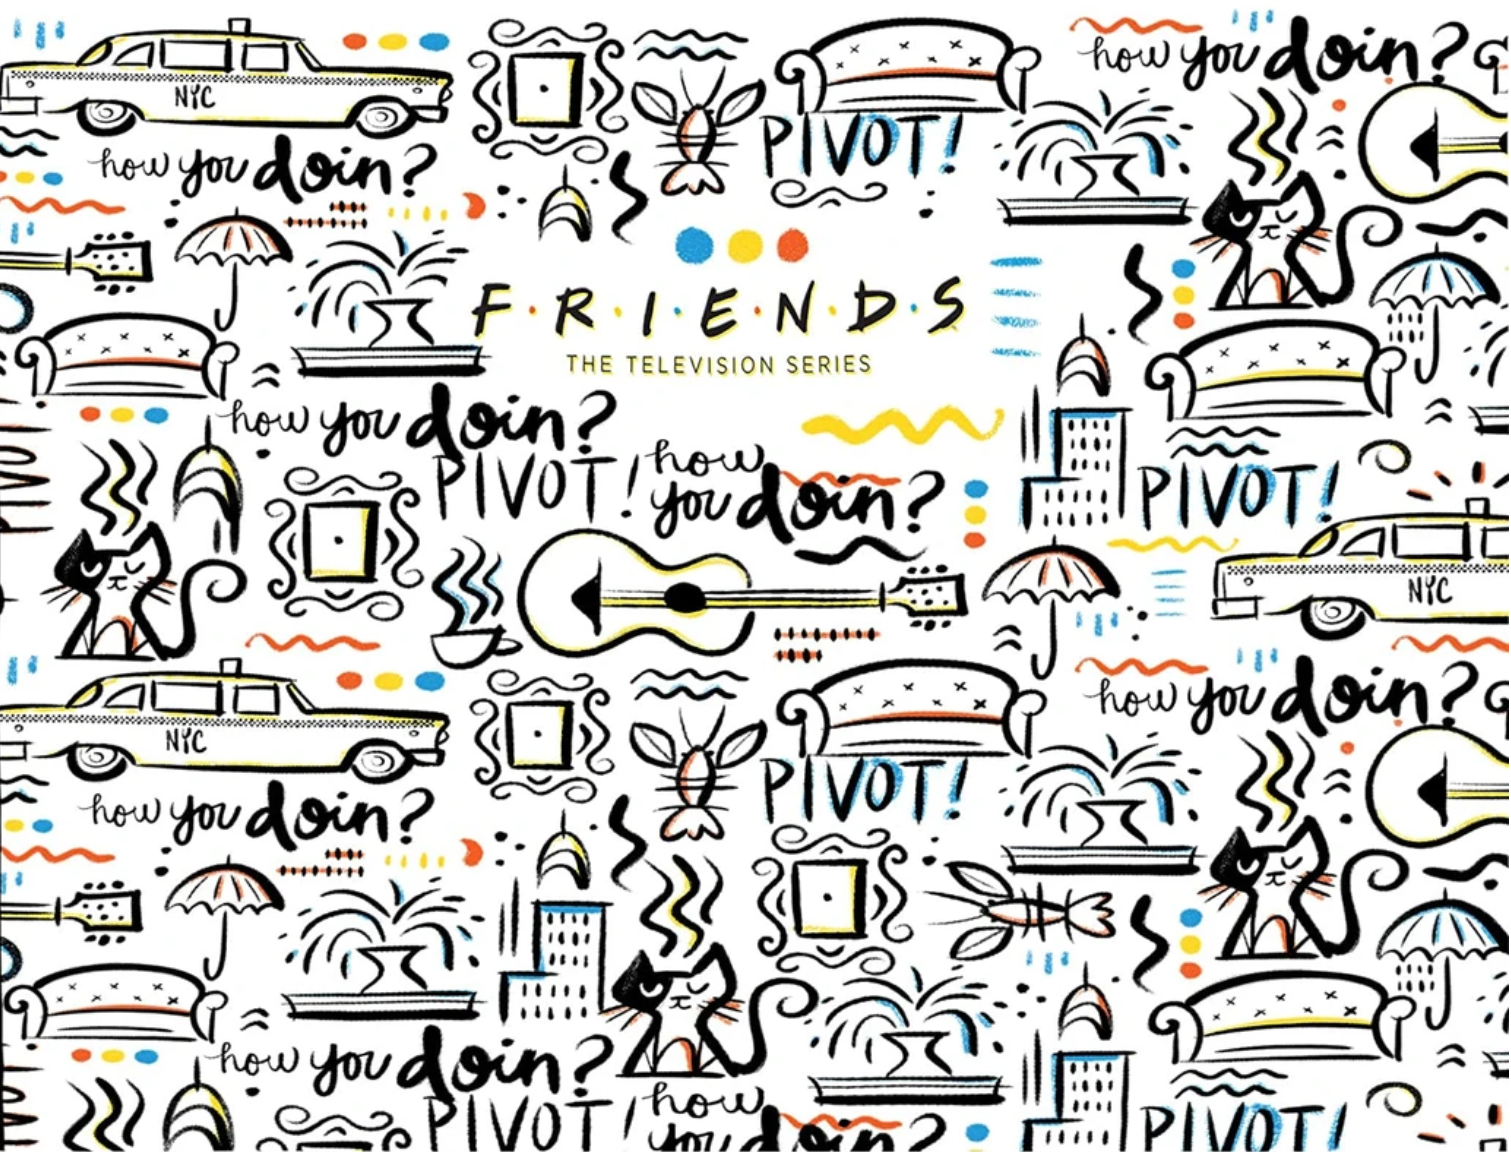 how you doin?
NYC
how you doin?
PIVOT!
F·R·I·E·N·D·S
THE TELEVISION SERIES
how you doin?
PIVOT!
how
you doin?
PIVOT!
NYC
NYC
how you doin?
how you doin?
PIVOT!
how you doin?
PIVOT!
how
you doin?
PIVOT!